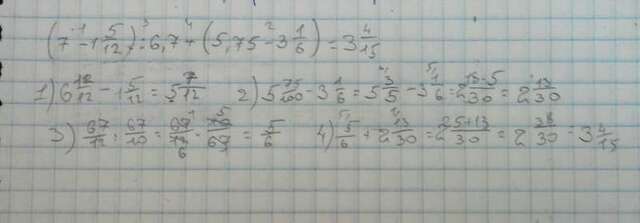 (7 - 1 5/12) : 6,7 + (5,75 - 3 1/6) = 3 4/15
1) 6 12/12 - 1 5/12 = 5 7/12 2) 5 75/100 - 3 1/6 = 5 3/5 - 3 1/6 = 2 18-5/30 = 2 13/30
3) 67/12 : 67/10 = 67/12 · 10/67 = 5/6 4) 5/6 + 2 13/30 = 2 25+13/30 = 2 38/30 = 3 4/15